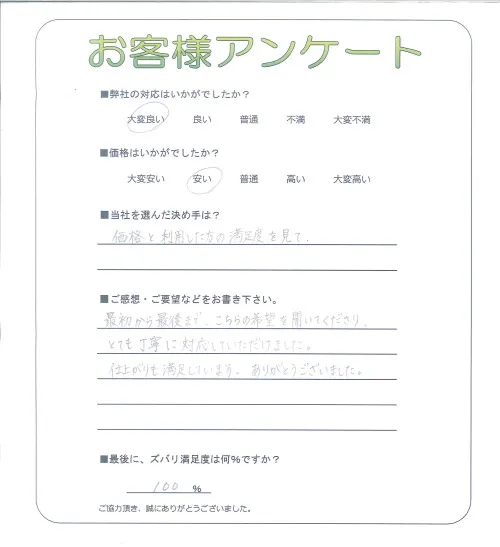 お客様アンケート
■弊社の対応はいかがでしたか？
大変良い 良い 普通 不満 大変不満
■価格はいかがでしたか？
大変安い 安い 普通 高い 大変高い
■当社を選んだ決め手は？
価格と利用した方の満足度を見て.
■ご感想・ご要望などをお書き下さい。
最初から最後まで、こちらの希望を聞いてくださり、
とても丁寧に対応していただけました。
仕上がりも満足しています。ありがとうございました。
■最後に、ズバリ満足度は何%ですか？
100 %
ご協力頂き、誠にありがとうございました。